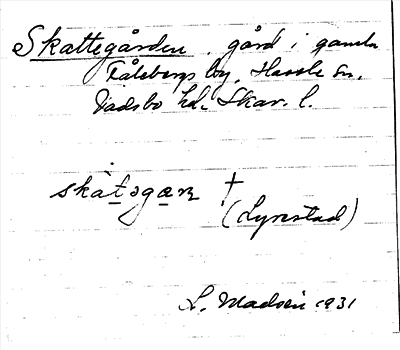 Skattegården, gård i gamla
Fålsbergs by, Hassle sn,
Vadsbo hd, Skar. l.
skàt̲əga̲n †
(Lyrestad)
L. Madsén 1931